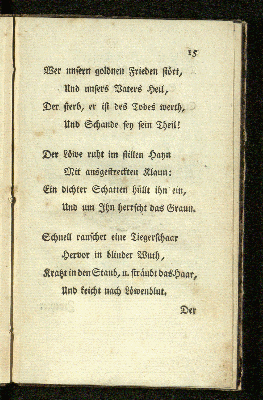 15
Wer unsern goldnen Frieden stört,
Und unsers Vaters Heil,
Der sterb, er ist des Todes werth,
Und Schande sey sein Theil!
Der Löwe ruht im stillen Hayn
Mit ausgestreckten Klaun:
Ein dichter Schatten hüllt ihn ein,
Und um Ihn herrscht das Graun.
Schnell rauschet eine Tiegerschaar
Hervor in blinder Wuth,
Kratzt in den Staub, u. sträubt das Haar,
Und keicht nach Löwenblut.
Der